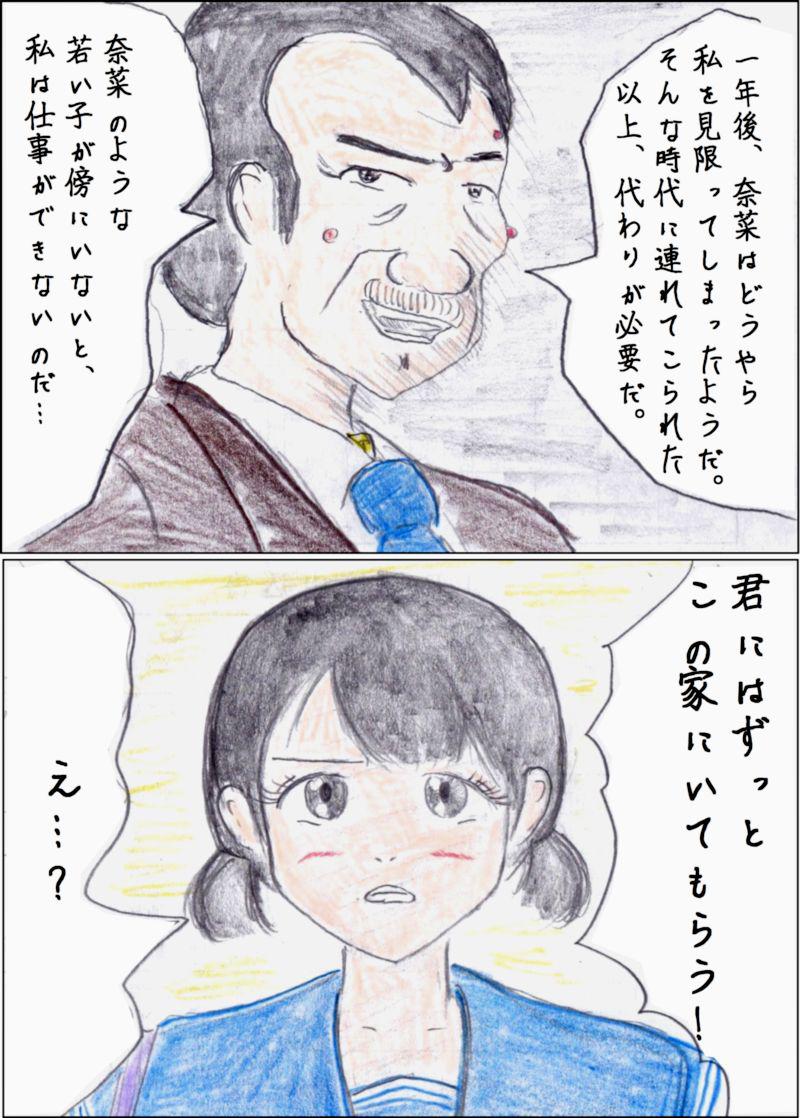 一年後、奈菜はどうやら
私を見限ってしまったようだ。
そんな時代に連れてこられた
以上、代わりが必要だ。
奈菜のような
若い子が傍にいないと、
私は仕事ができないのだ…
君にはずっと
この家にいてもらう!
え…?